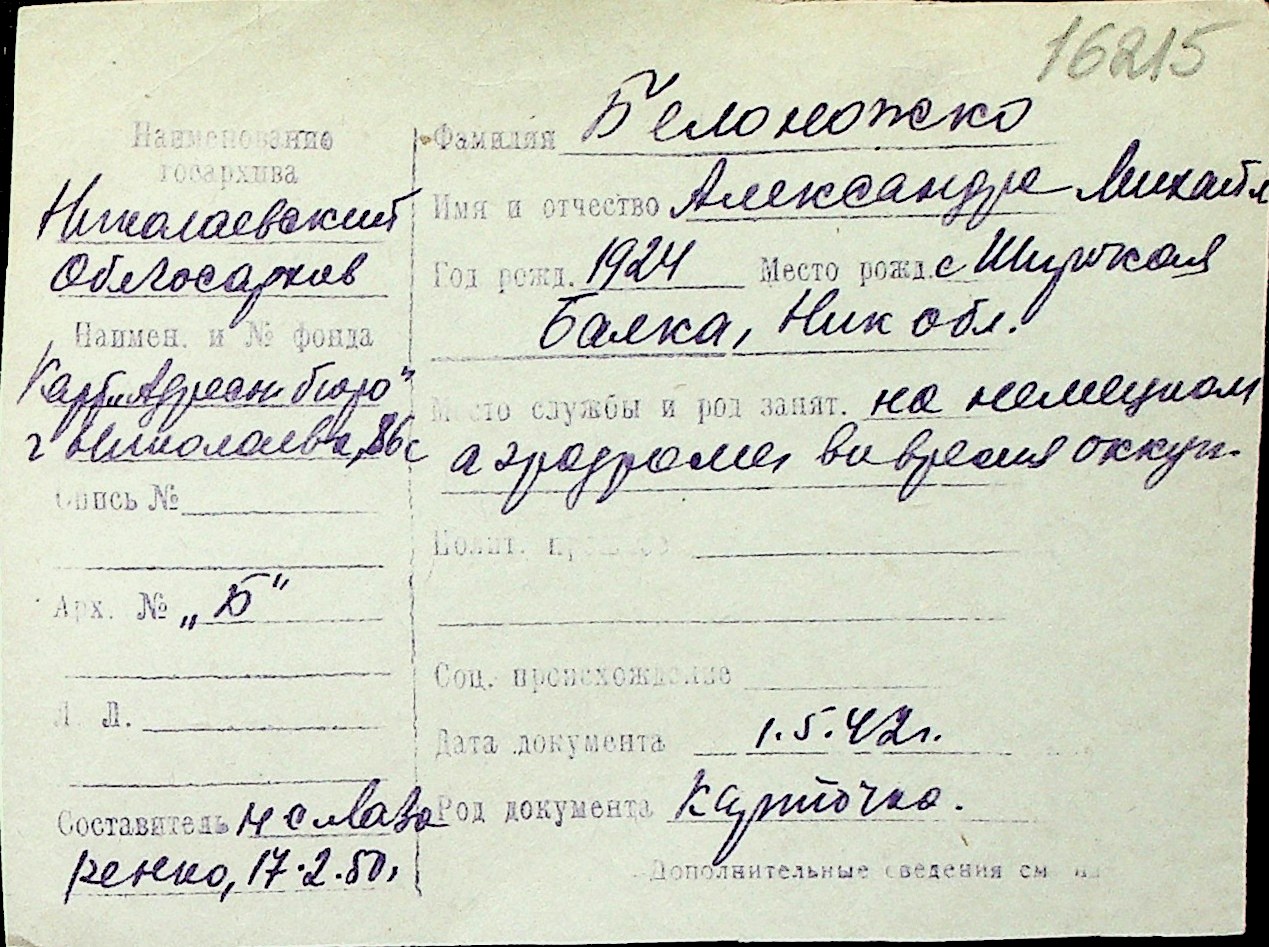 16215
Наименование
госархива
Николаевский
Облгосархив
Наимен. и № фонда
Карт. „Адресн бюро"
г Николаева, 86с
Опись №
Арх. № „Б"
Л. Л.
Составитель
ренко, 17.2.50.
Фамилия Белоножко
Имя и отчество Александра Михайл
Год рожд. 1924 Место рожд. с Широкая
Балка, Ник обл.
Место службы и род занят. на немецком
аэродроме во время оккуп.
Полит.
Соц. происхождение
Дата документа 1.5.42г.
Род документа Карточка.
Дополнительные сведения см